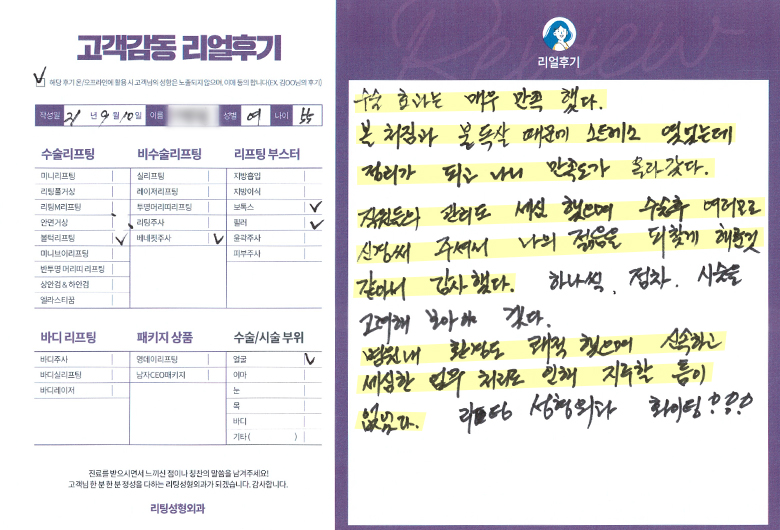 고객감동 리얼후기
해당 후기 온/오프라인에 활용 시 고객님의 성함은 노출되지 않으며, 이에 동의 합니다(EX. 김OO님의 후기)
작성일 21 년 9 월 10 일 이름 성별 여 나이 55
수술리프팅
미니리프팅
리팅풀거상
리팅M리프팅
안면거상
볼턱리프팅
미니브이리프팅
반투명 머리띠 리프팅
상안검 & 하안검
엘라스티꿈
비수술리프팅
실리프팅
레이저리프팅
투명머리띠리프팅
리팅주사
베네핏주사
리프팅 부스터
지방흡입
지방이식
보톡스
필러
윤곽주사
피부주사
바디 리프팅
바디주사
바디실리프팅
바디레이저
패키지 상품
명예이리프팅
남자CEO패키지
수술/시술 부위
얼굴
이마
눈
목
바디
기타 ( )
진료를 받으시면서 느끼신 점이나 칭찬의 말씀을 남겨주세요!
고객님 한 분 한 분 정성을 다하는 리팅성형외과가 되겠습니다. 감사합니다.
리팅성형외과
Review
리얼후기
수술 효과는 매우 만족 했다.
볼 처짐과 불독살 때문에 스트레스 였었는데
정리가 되고 나니 만족도가 올라갔다.
직원들의 관리도 세심 했으며 수술후 여러모로
신경써 주셔서 나의 젊음을 되찾게 해준것
같아서 감사했다. 하나씩, 점차, 시술을
고려해 보아야 겠다.
병원내 환경도 쾌적 했으며 신속하고
세심한 업무 처리로 인해 지루할 틈이
없었다. 리팅 성형외과 화이팅!!!